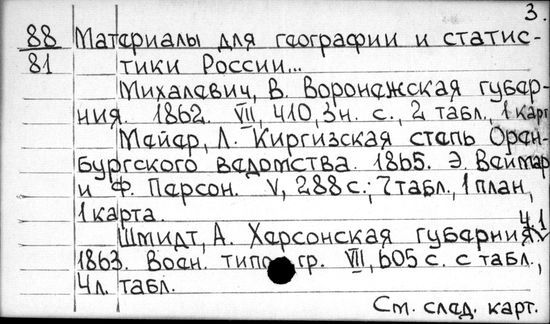 3.
88 Материалы для географии и статис-
81 тики России...
Михалевич, В. Воронежская губер-
ния. 1862. VII, 410, 3 н. с., 2 табл., 1 карт
Мейер, Л. Киргизская степь Орен-
бургского ведомства. 1865. Э. Веймар
и Ф. Персон. V, 288 с.; 7 табл., 1 план,
1 карта.
Шмидт, А. Херсонская губерния. Ч. 1
1863. Воен. типогр. VII, 605 с. с табл.,
4 л. табл.
См. след. карт.